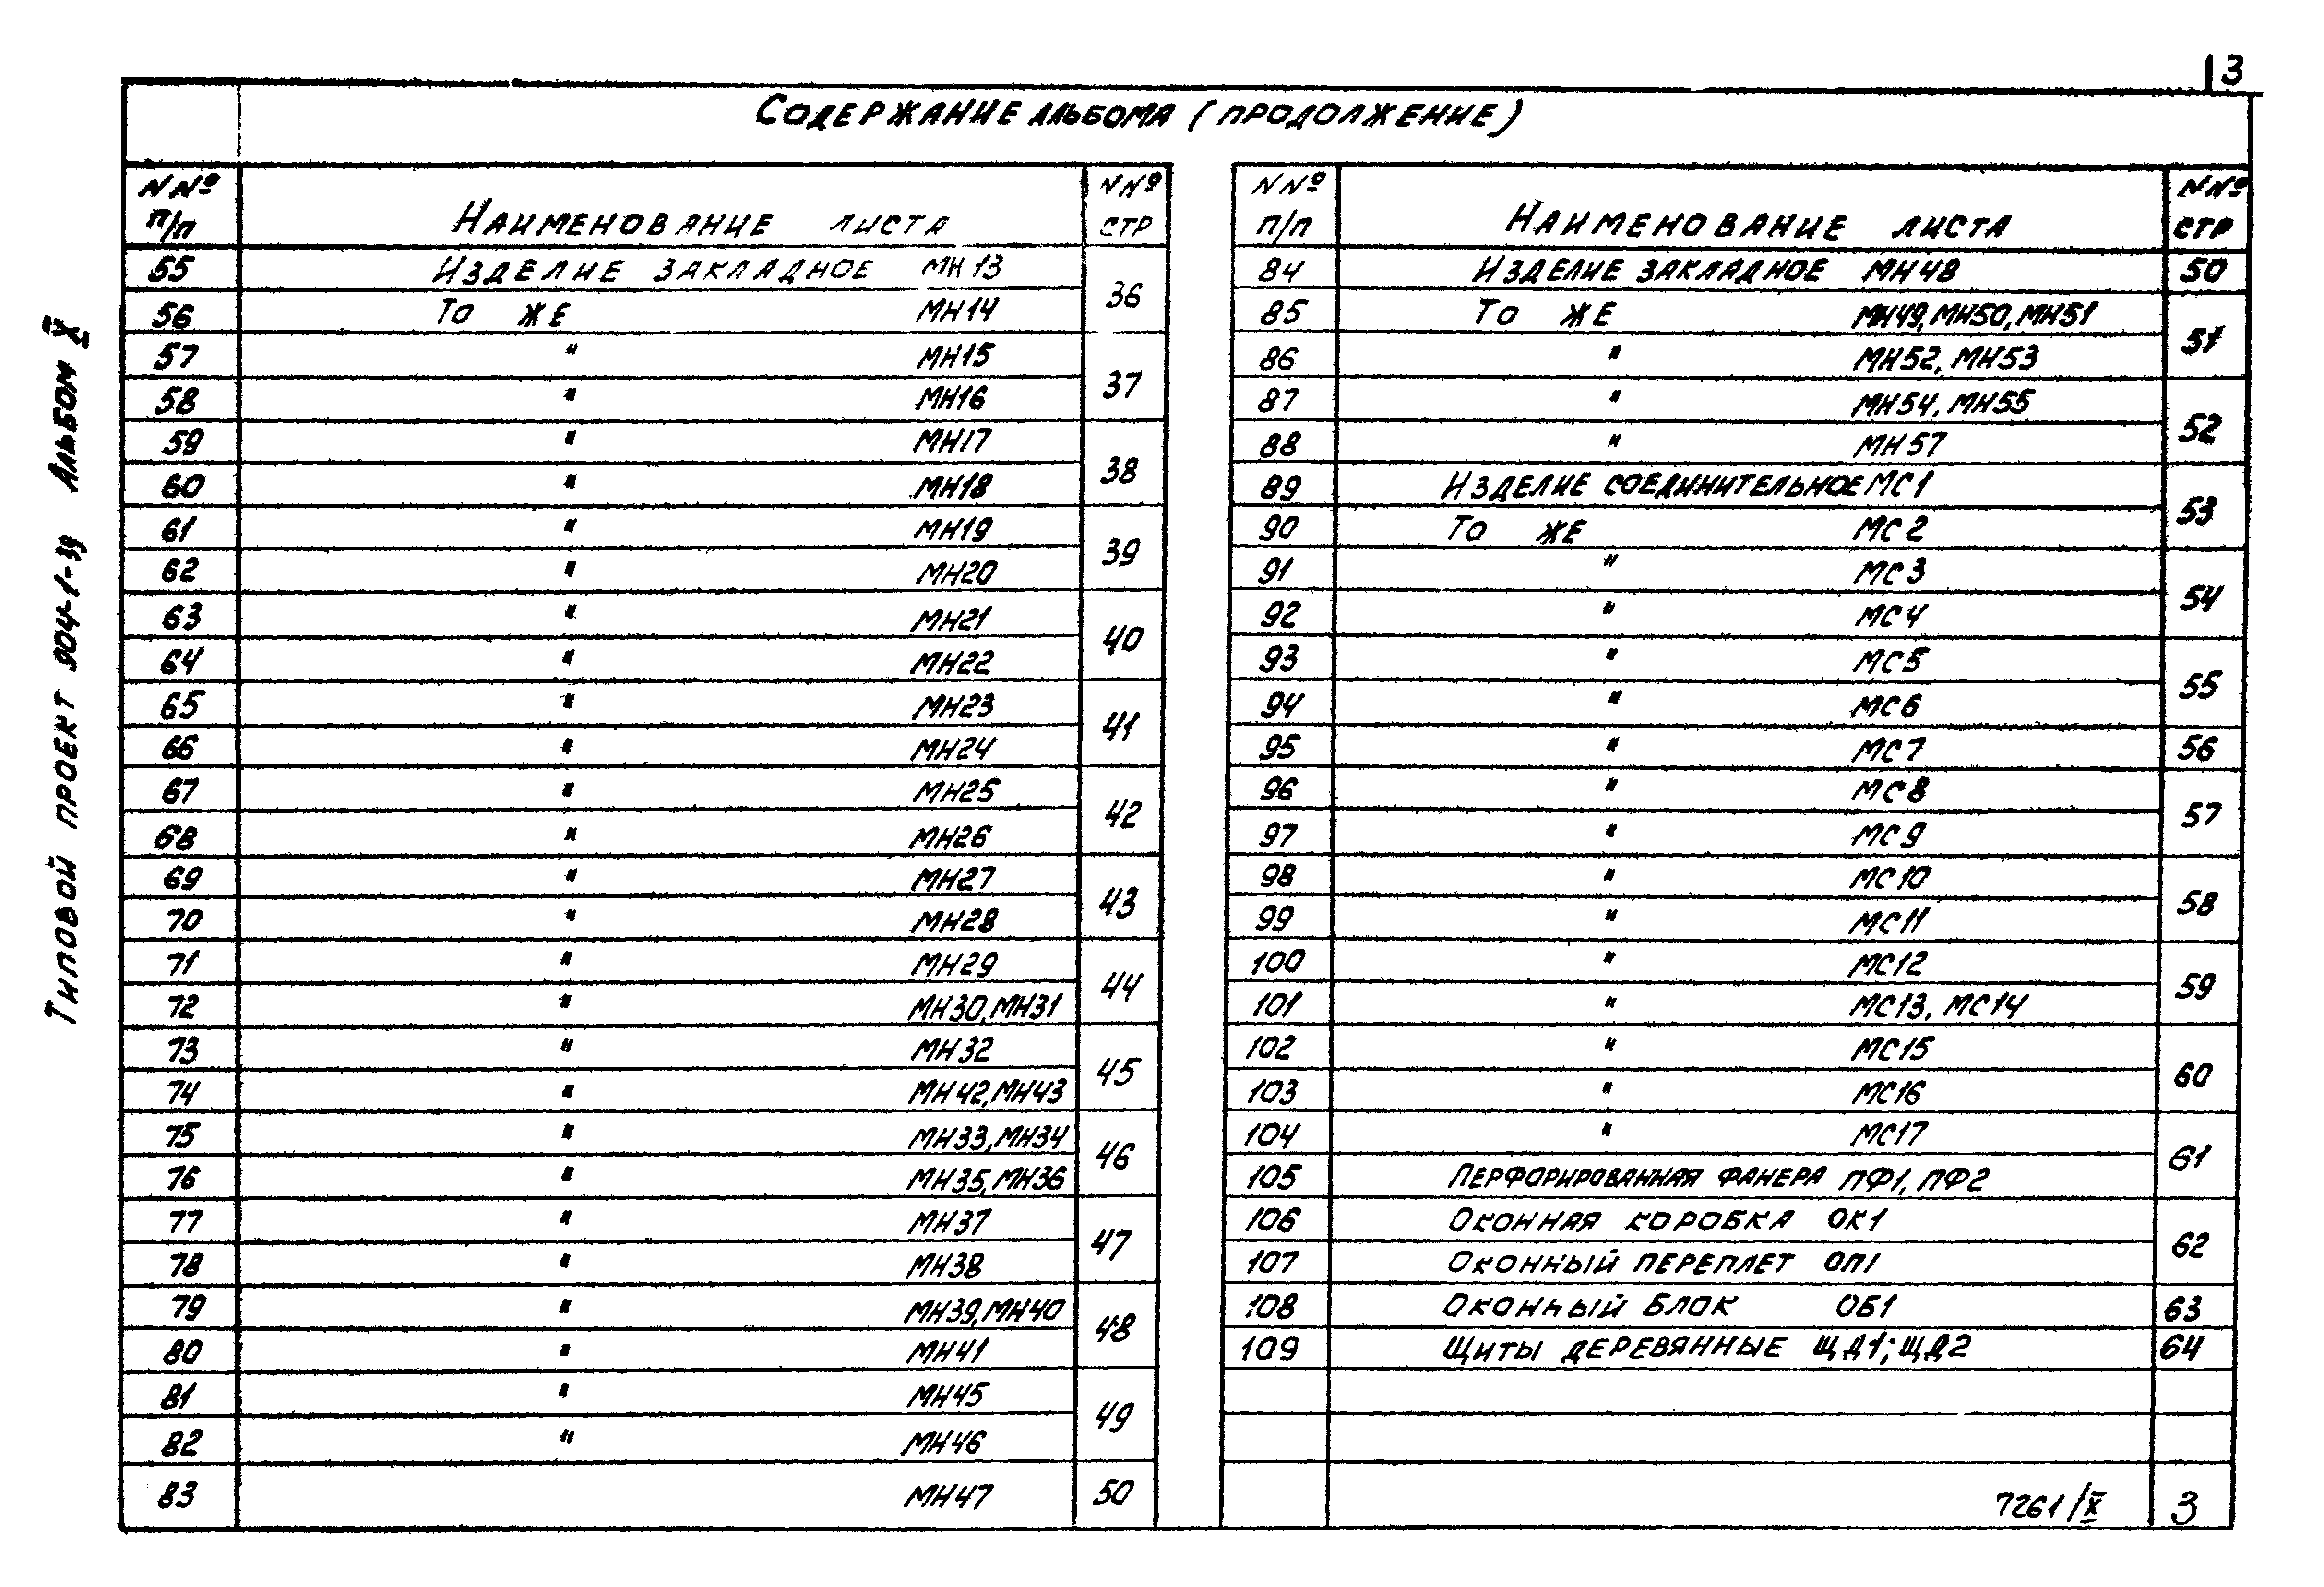 3
Содержание альбома (продолжение)
Типовой проект 904-1-39 Альбом X
NNº п/п Наименование листа NNº стр
55 Изделие закладное МН13 36
56 То же МН14
57 " МН15 37
58 " МН16
59 " МН17 38
60 " МН18
61 " МН19 39
62 " МН20
63 " МН21 40
64 " МН22
65 " МН23 41
66 " МН24
67 " МН25 42
68 " МН26
69 " МН27 43
70 " МН28
71 " МН29 44
72 " МН30, МН31
73 " МН32 45
74 " МН42, МН43
75 " МН33, МН34 46
76 " МН35, МН36
77 " МН37 47
78 " МН38
79 " МН39, МН40 48
80 " МН41
81 " МН45 49
82 " МН46
83 МН47 50
NNº п/п Наименование листа NNº стр
84 Изделие закладное МН48 50
85 То же МН49, МН50, МН51 51
86 " МН52, МН53
87 " МН54, МН55 52
88 " МН57
89 Изделие соединительное МС1 53
90 То же МС2
91 " МС3 54
92 " МС4
93 " МС5 55
94 " МС6
95 " МС7 56
96 " МС8 57
97 " МС9
98 " МС10 58
99 " МС11
100 " МС12 59
101 " МС13, МС14
102 " МС15 60
103 " МС16
104 " МС17 61
105 Перфорированная фанера ПФ1, ПФ2
106 Оконная коробка ОК1 62
107 Оконный переплет ОП1
108 Оконный блок ОБ1 63
109 Щиты деревянные ЩД1; ЩД2 64
7261/X 3